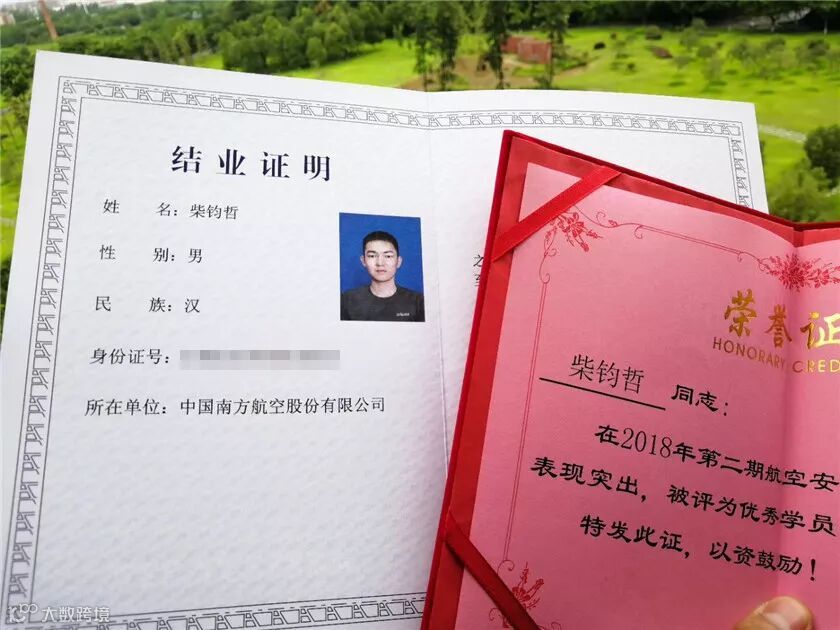 结业证明
姓 名：柴钧哲
性 别：男
民 族：汉
身份证号：
所在单位：中国南方航空股份有限公司
之
荣誉证
HONORARY CRED
柴钧哲 同志：
在2018年第二期航空安
表现突出，被评为优秀学员
特发此证，以资鼓励！
大数跨境